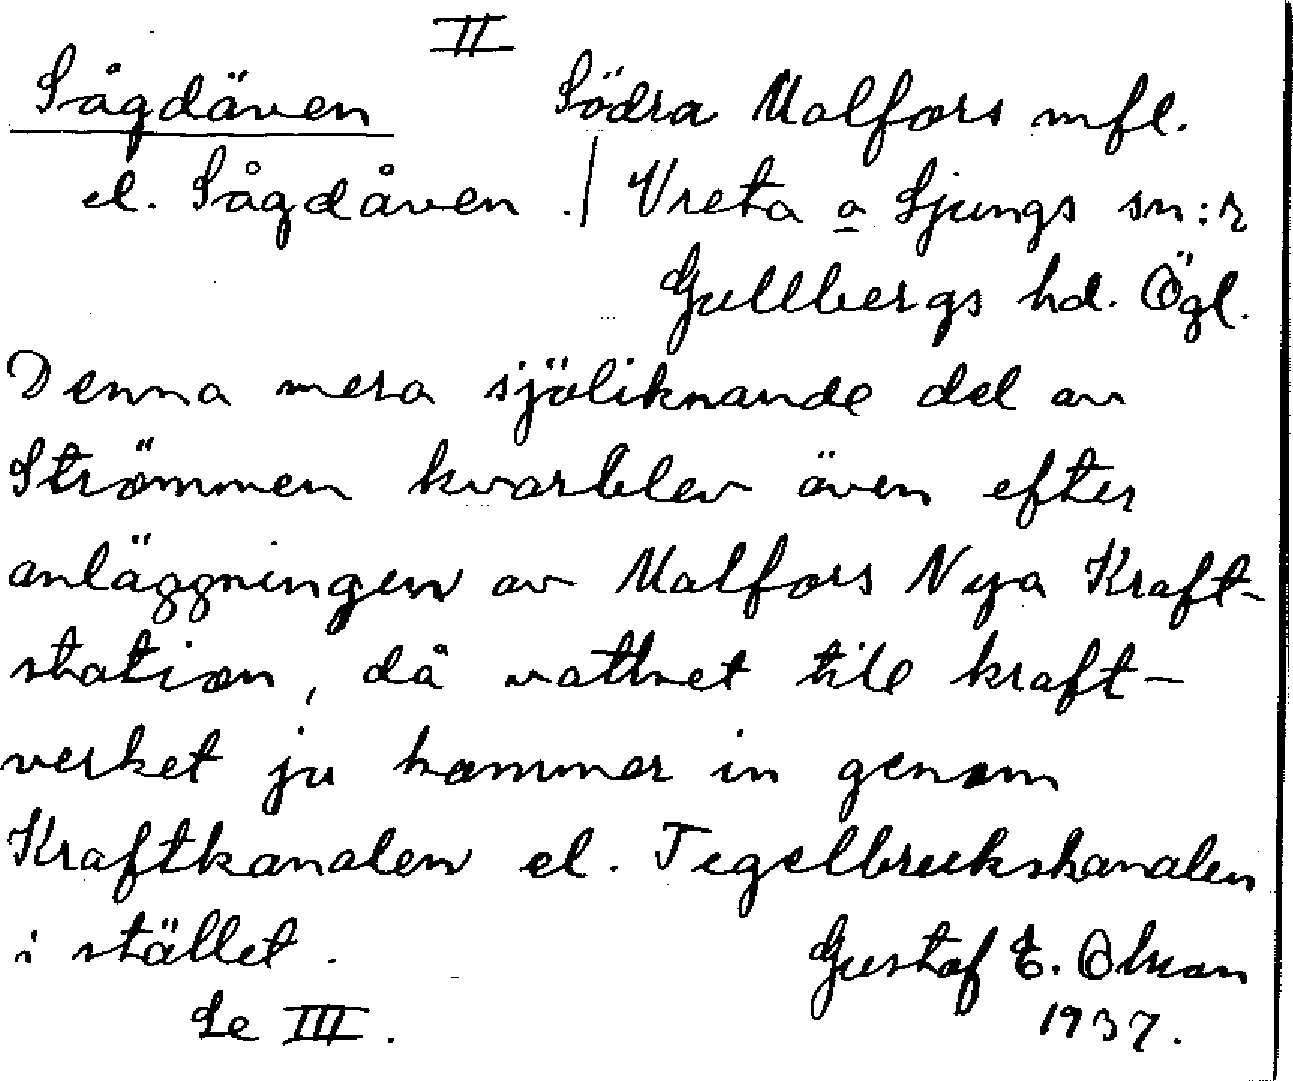 II
Sågdäven Södra Malfors mfl.
el. Sågdåven ./ Vreta o Ljungs sn:r
Gullbergs hd. Ögl.
Denna mera sjöliknande del av
Strömmen kvarblev även efter
anläggningen av Malfors Nya Kraft-
station, då vattnet till kraft-
verket ju kommer in genom
Kraftkanalen el. Tegelbrukskanalen
i stället.
Gustaf E. Olsson
Se III. 1937.